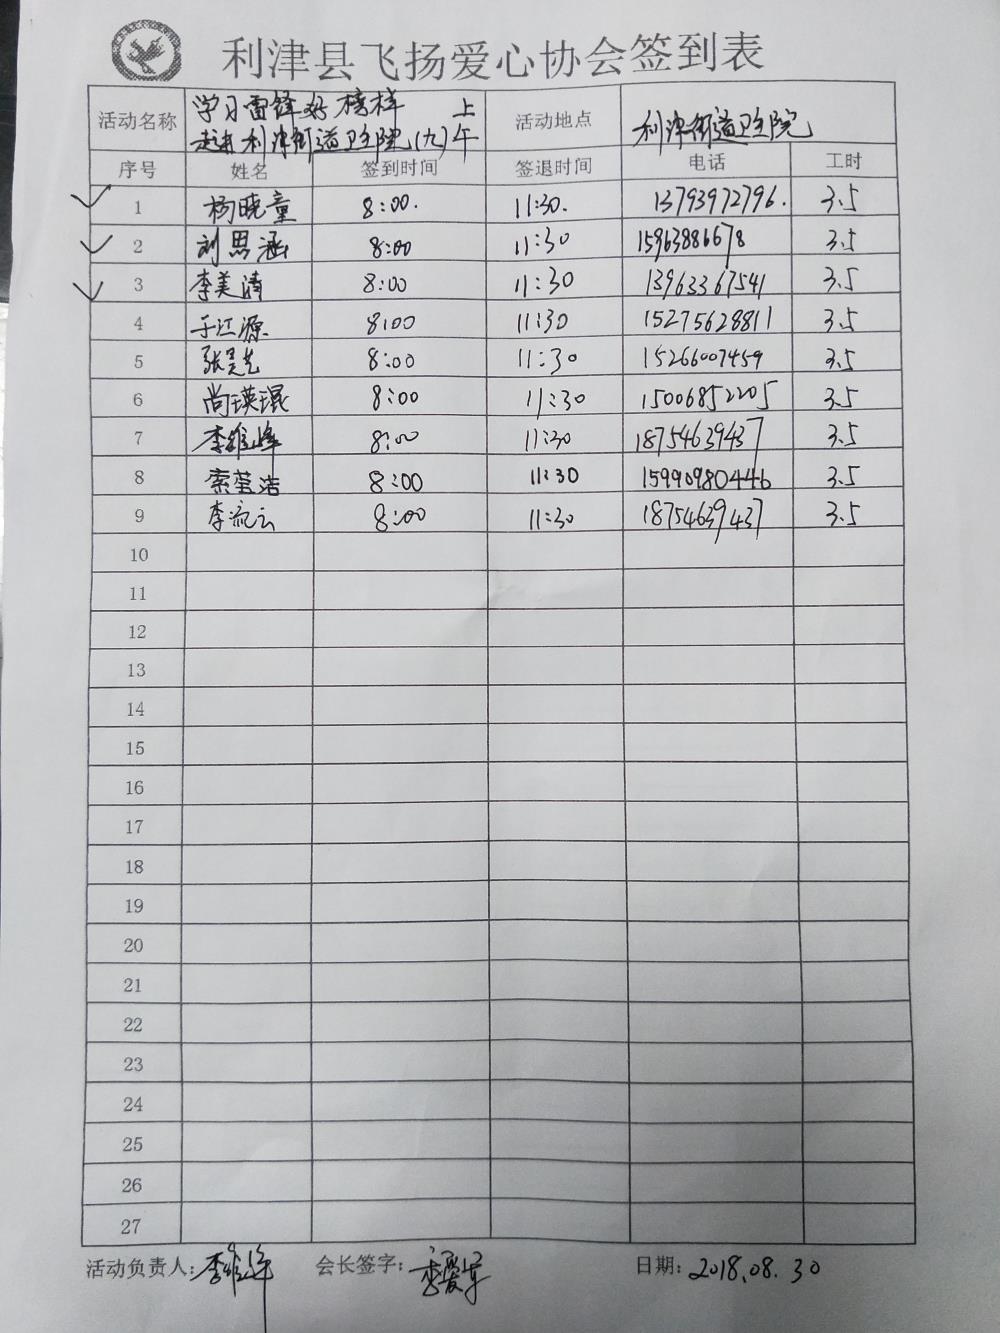 利津县飞扬爱心协会签到表
活动名称 学习雷锋好榜样 上午 走进利津街道卫生院(九) 活动地点 利津街道卫生院
序号 姓名 签到时间 签退时间 电话 工时
1 杨晓童 8:00. 11:30. 13793972796. 3.5
2 刘思涵 8:00 11:30 15963886678 3.5
3 李美清 8:00 11:30 13963367541 3.5
4 于江源 8:00 11:30 15275628811 3.5
5 张昊艺 8:00 11:30 15266007459 3.5
6 尚瑛琨 8:00 11:30 15006852205 3.5
7 李维峰 8:00 11:30 18754639437 3.5
8 索莹洁 8:00 11:30 15990980446 3.5
9 李流云 8:00 11:30 18754639437 3.5
10
11
12
13
14
15
16
17
18
19
20
21
22
23
24
25
26
27
活动负责人: 李维峰 会长签字: 日期: 2018.08.30